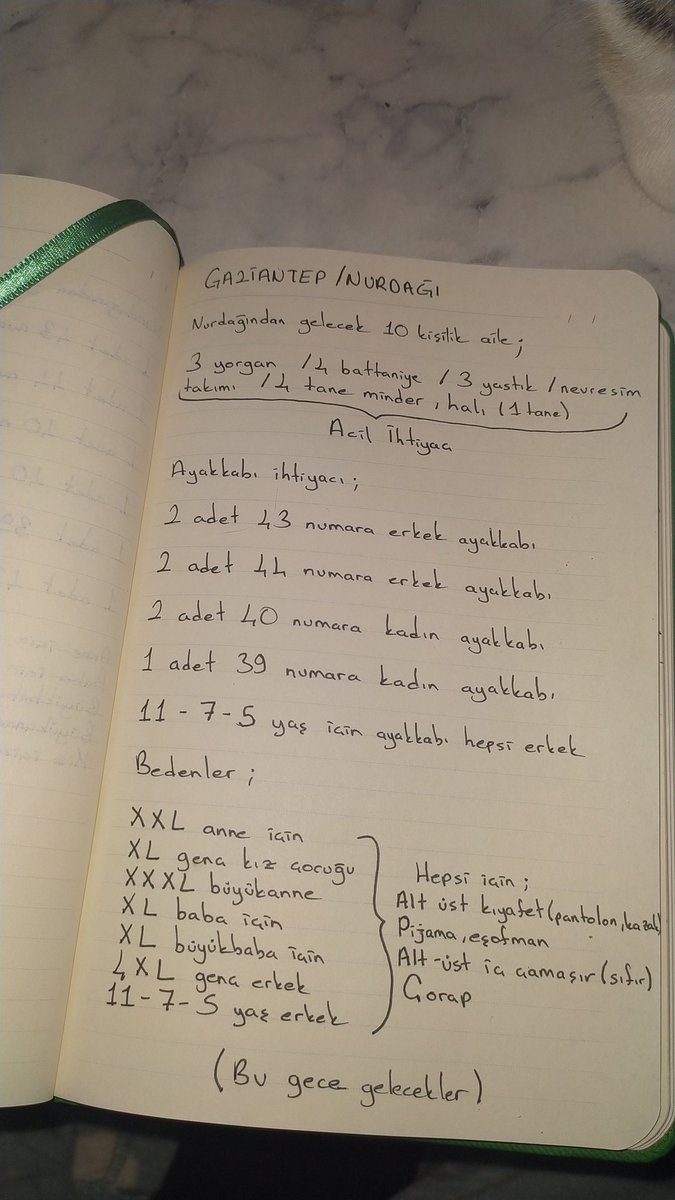 GAZİANTEP / NURDAĞI
Nurdağından gelecek 10 kişilik aile;
3 yorgan / 4 battaniye / 3 yastık / nevresim
takımı / 4 tane minder, halı (1 tane)
Acil İhtiyac
Ayakkabı ihtiyacı;
2 adet 43 numara erkek ayakkabı
2 adet 44 numara erkek ayakkabı
2 adet 40 numara kadın ayakkabı
1 adet 39 numara kadın ayakkabı
11 - 7 - 5 yaş için ayakkabı hepsi erkek
Bedenler;
XXL anne için
XL genç kız çocuğu
XXXL büyükanne
XL baba için
XL büyükbaba için
4XL genç erkek
11 - 7 - 5 yaş erkek
Hepsi için;
Alt üst kıyafet (pantolon, kazak)
Pijama, eşofman
Alt-üst iç çamaşır (sıfır)
Çorap
(Bu gece gelecekler)